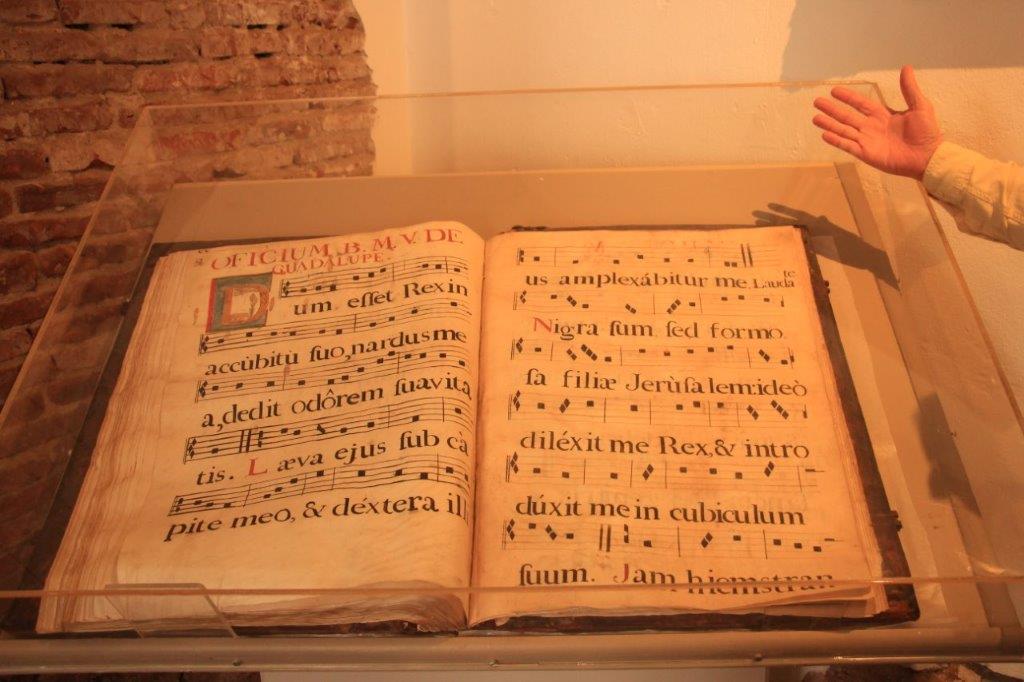 OFICIUM. B. M. V. DE
GUADALUPE.
Dum. eſſet Rex in
accùbitù ſuo, nardus me
a, dedit odôrem ſuavita
tis. Læva ejus ſub cà
pite meo, & déxtera ill
us amplexábitur me. Laudate
Nigra ſum. ſed formo.
ſa filiæ Jerùſalem: ideò
diléxit me Rex, & intro
dúxit me in cubiculum
ſuum. Jam hiemstran